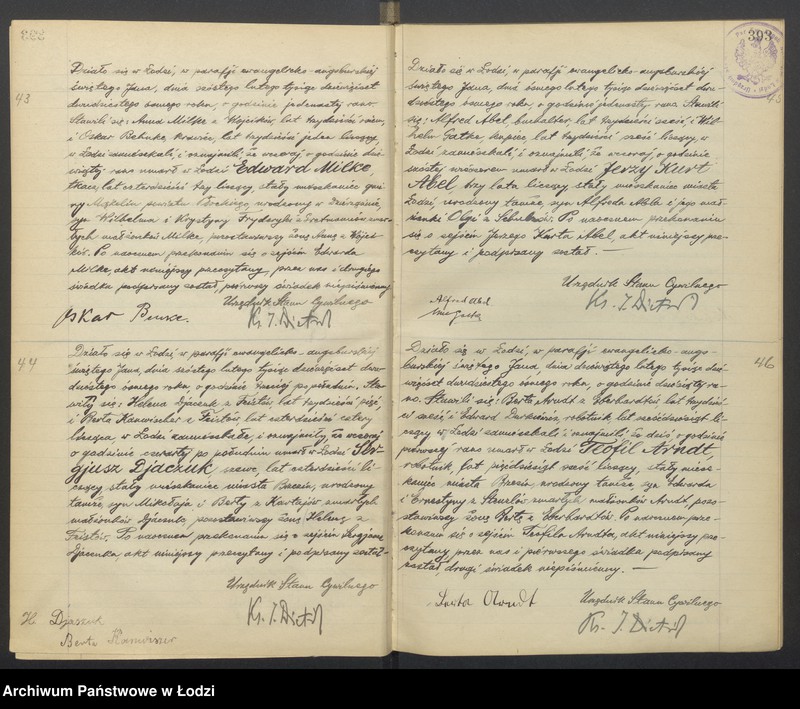 43
Działo się w Łodzi, w parafji ewangelicko-augsburskiej
świętego Jana, dnia szóstego lutego tysiąc dziewięćset
dwudziestego ósmego roku, o godzinie jedenastej rano.
Stawili się: Anna Milke z Wojcików, lat trzydzieści
i Oskar Behnke, krawiec, lat trzydzieści jeden liczący,
w Łodzi zamieszkali, i oznajmili, że wczoraj o godzinie
rano umarł w Łodzi Edward Milke,
tkacz, lat czterdzieści trzy liczący, stały mieszkaniec gmi-
ny powiatu urodzony w
syn Wilhelma i Krystyny Fryderyki z zmar-
łych małżonków Milke, pozostawiwszy żonę Annę z Wojci-
ków. Po naocznem przekonaniu się o zejściu Edwarda
Milke, akt niniejszy przeczytany, przez nas i drugiego
świadka podpisany został, pierwszy świadek niepiśmienny.
Urzędnik Stanu Cywilnego
Oskar Benke.
Ks. J. Dietrich
44
Działo się w Łodzi, w parafji ewangelicko-augsburskiej
świętego Jana, dnia szóstego lutego tysiąc dziewięćset dwu-
dziestego ósmego roku, o godzinie trzeciej po południu. Sta-
wili się: Helena Djaczuk z Feistów, lat trzydzieści pięć,
i Berta Kanwiszer z Feistów, lat czterdzieści cztery
licząca, w Łodzi zamieszkałe, i oznajmiły, że wczoraj
o godzinie czwartej po południu umarł w Łodzi Ser-
gjusz Djaczuk, szewc, lat czterdzieści li-
czący, stały mieszkaniec miasta Brzezin, urodzony
tamże, syn Mikołaja i Berty z zmarłych
małżonków Djaczuk, pozostawiwszy żonę Helenę z
Feistów. Po naocznem przekonaniu się o zejściu Sergjusza
Djaczuka, akt niniejszy przeczytany i podpisany został.
Urzędnik Stanu Cywilnego
H Djaczuk
Ks. J. Dietrich
Berta Kanwiszer
393
45
Działo się w Łodzi, w parafji ewangelicko-augsburskiej
świętego Jana, dnia szóstego lutego tysiąc dziewięćset dwu-
dziestego ósmego roku, o godzinie jedenastej rano. Stawili
się: Alfred Abel, buchalter, lat trzydzieści sześć, i Wil-
helm Gatke, kupiec, lat trzydzieści sześć liczący, w
Łodzi zamieszkali, i oznajmili, że wczoraj o godzinie
szóstej wieczorem umarł w Łodzi Jerzy Kurt
Abel, trzy lata liczący, stały mieszkaniec miasta
Łodzi, urodzony tamże, syn Alfreda Abla i jego mał-
żonki Olgi z Po naocznem przekonaniu
się o zejściu Jerzego Kurta Abel, akt niniejszy prze-
czytany i podpisany został. —
Urzędnik Stanu Cywilnego
Alfred Abel
Ks. J. Dietrich
46
Działo się w Łodzi, w parafji ewangelicko-augs-
burskiej świętego Jana, dnia dziewiątego lutego tysiąc dzie-
więćset dwudziestego ósmego roku, o godzinie dziesiątej ra-
no. Stawili się: Berta Arndt z Eberhardtów, lat trzydzieś-
ci sześć, i Edward robotnik, lat sześćdziesiąt li-
czący, w Łodzi zamieszkali, i oznajmili, że dziś, o godzinie
pierwszej rano umarł w Łodzi Teofil Arndt,
robotnik, lat pięćdziesiąt sześć liczący, stały miesz-
kaniec miasta Brzezin, urodzony tamże, syn Edwarda
i Ernestyny z zmarłych małżonków Arndt, pozo-
stawiwszy żonę Bertę z Eberhardtów. Po naocznem prze-
konaniu się o zejściu Teofila Arndta, akt niniejszy prze-
czytany, przez nas i pierwszego świadka podpisany
został, drugi świadek niepiśmienny. —
Urzędnik Stanu Cywilnego
Berta Arndt
Ks. J. Dietrich
Archiwum Państwowe w Łodzi